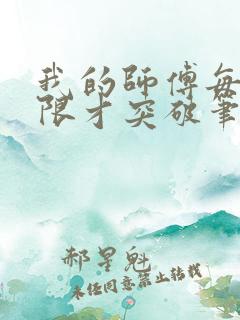 我的师傅每
限才突破筆
郝星魁
未经同意禁止转载